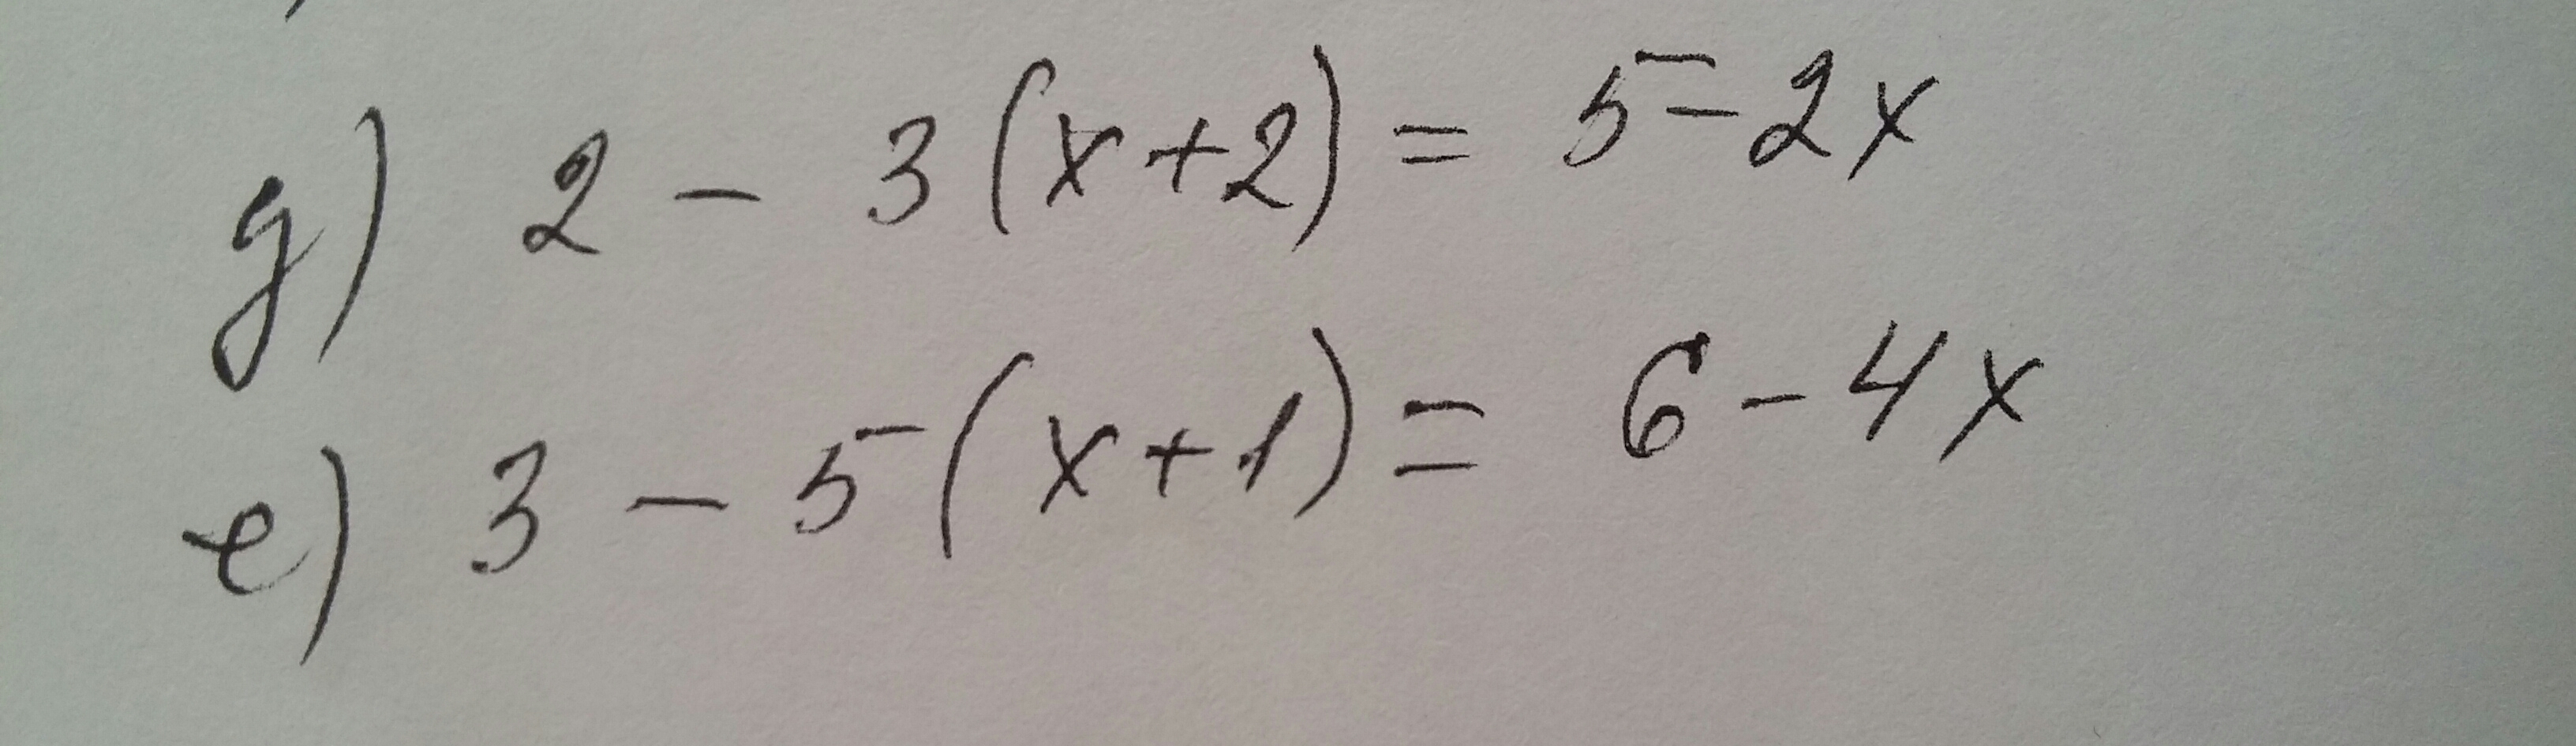 д) 2 - 3(x+2) = 5 - 2x
е) 3 - 5(x+1) = 6 - 4x